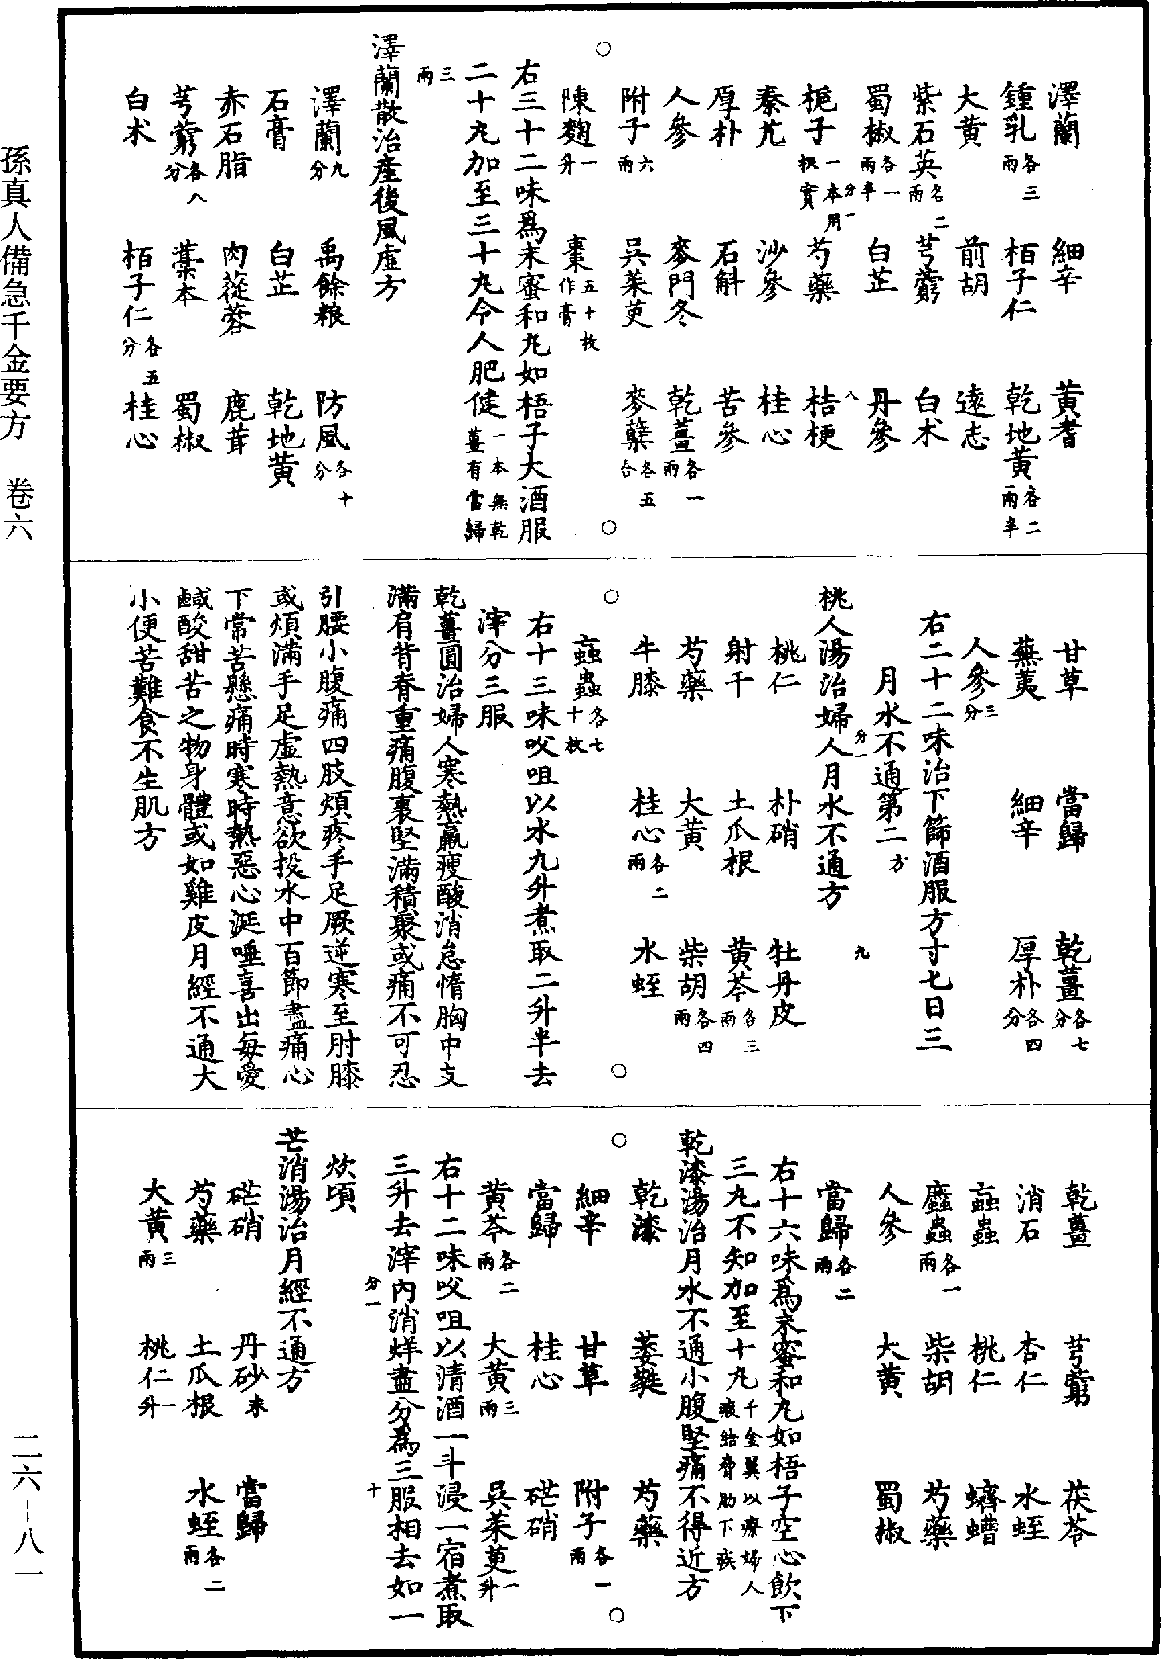 澤蘭　細辛　黃耆
鍾乳各三兩　栢子仁　乾地黃各二兩半
大黃　前胡　遠志
紫石英各二兩　芎藭　白术
蜀椒各一兩半　白芷　丹參
梔子一分一本用枳實　芍藥　桔梗
秦艽　沙參　桂心
厚朴　石斛　苦參
人參　麥門冬　乾薑各一兩
附子六兩　吳茱萸　麥糵各五合
陳麴一升　棗五十枚作膏
右三十二味為末蜜和丸如梧子大酒服
二十丸加至三十丸令人肥健一本無乾薑有當歸
三兩
澤蘭散治產後風虛方
澤蘭九分　禹餘糧　防風各十分
石膏　白芷　乾地黃
赤石脂　肉蓯蓉　鹿茸
芎藭各八分　藁本　蜀椒
白术　栢子仁各五分　桂心
甘草　當歸　乾薑各七分
蕪荑　細辛　厚朴各四分
人參三分
右二十二味治下篩酒服方寸七日三
月水不通第二方
分一　八　九
桃人湯治婦人月水不通方
桃仁　朴硝　牡丹皮
射干　土瓜根　黃芩各三兩
芍藥　大黃　柴胡各四兩
牛膝　桂心各二兩　水蛭
䖟蟲各七十枚
右十三味㕮咀以水九升煮取二升半去
滓分三服
乾薑圓治婦人寒熱羸瘦酸消怠惰胸中支
滿肩背脊重痛腹裏堅滿積聚或痛不可忍
引腰小腹痛四肢煩疼手足厥逆寒至肘膝
或煩滿手足虛熱意欲投水中百節盡痛心
下常苦懸痛時寒時熱惡心涎唾喜出每愛
鹹酸甜苦之物身體或如雞皮月經不通大
小便苦難食不生肌方
乾薑　芎藭　茯苓
消石　杏仁　水蛭
䖟蟲　桃仁　蠐螬
䗪蟲各一兩　柴胡　芍藥
人參　大黃　蜀椒
當歸各二兩
右十六味為末蜜和丸如梧子空心飲下
三丸不知加至十丸千金翼以療婦人瘕結脅肋下疾
乾漆湯治月水不通小腹堅痛不得近方
乾漆　萎蕤　芍藥
細辛　甘草　附子各一兩
當歸　桂心　硭硝
黃芩各二兩　大黃三兩　吳茱萸一升
右十二味㕮咀以清酒一斗浸一宿煮取
三升去滓內消烊盡分為三服相去如一
分一　十
炊頃
芒消湯治月經不通方
硭硝　丹砂末　當歸
芍藥　土瓜根　水蛭各二兩
大黃三兩　桃仁一升
孫真人備急千金要方　卷六
二六－八一